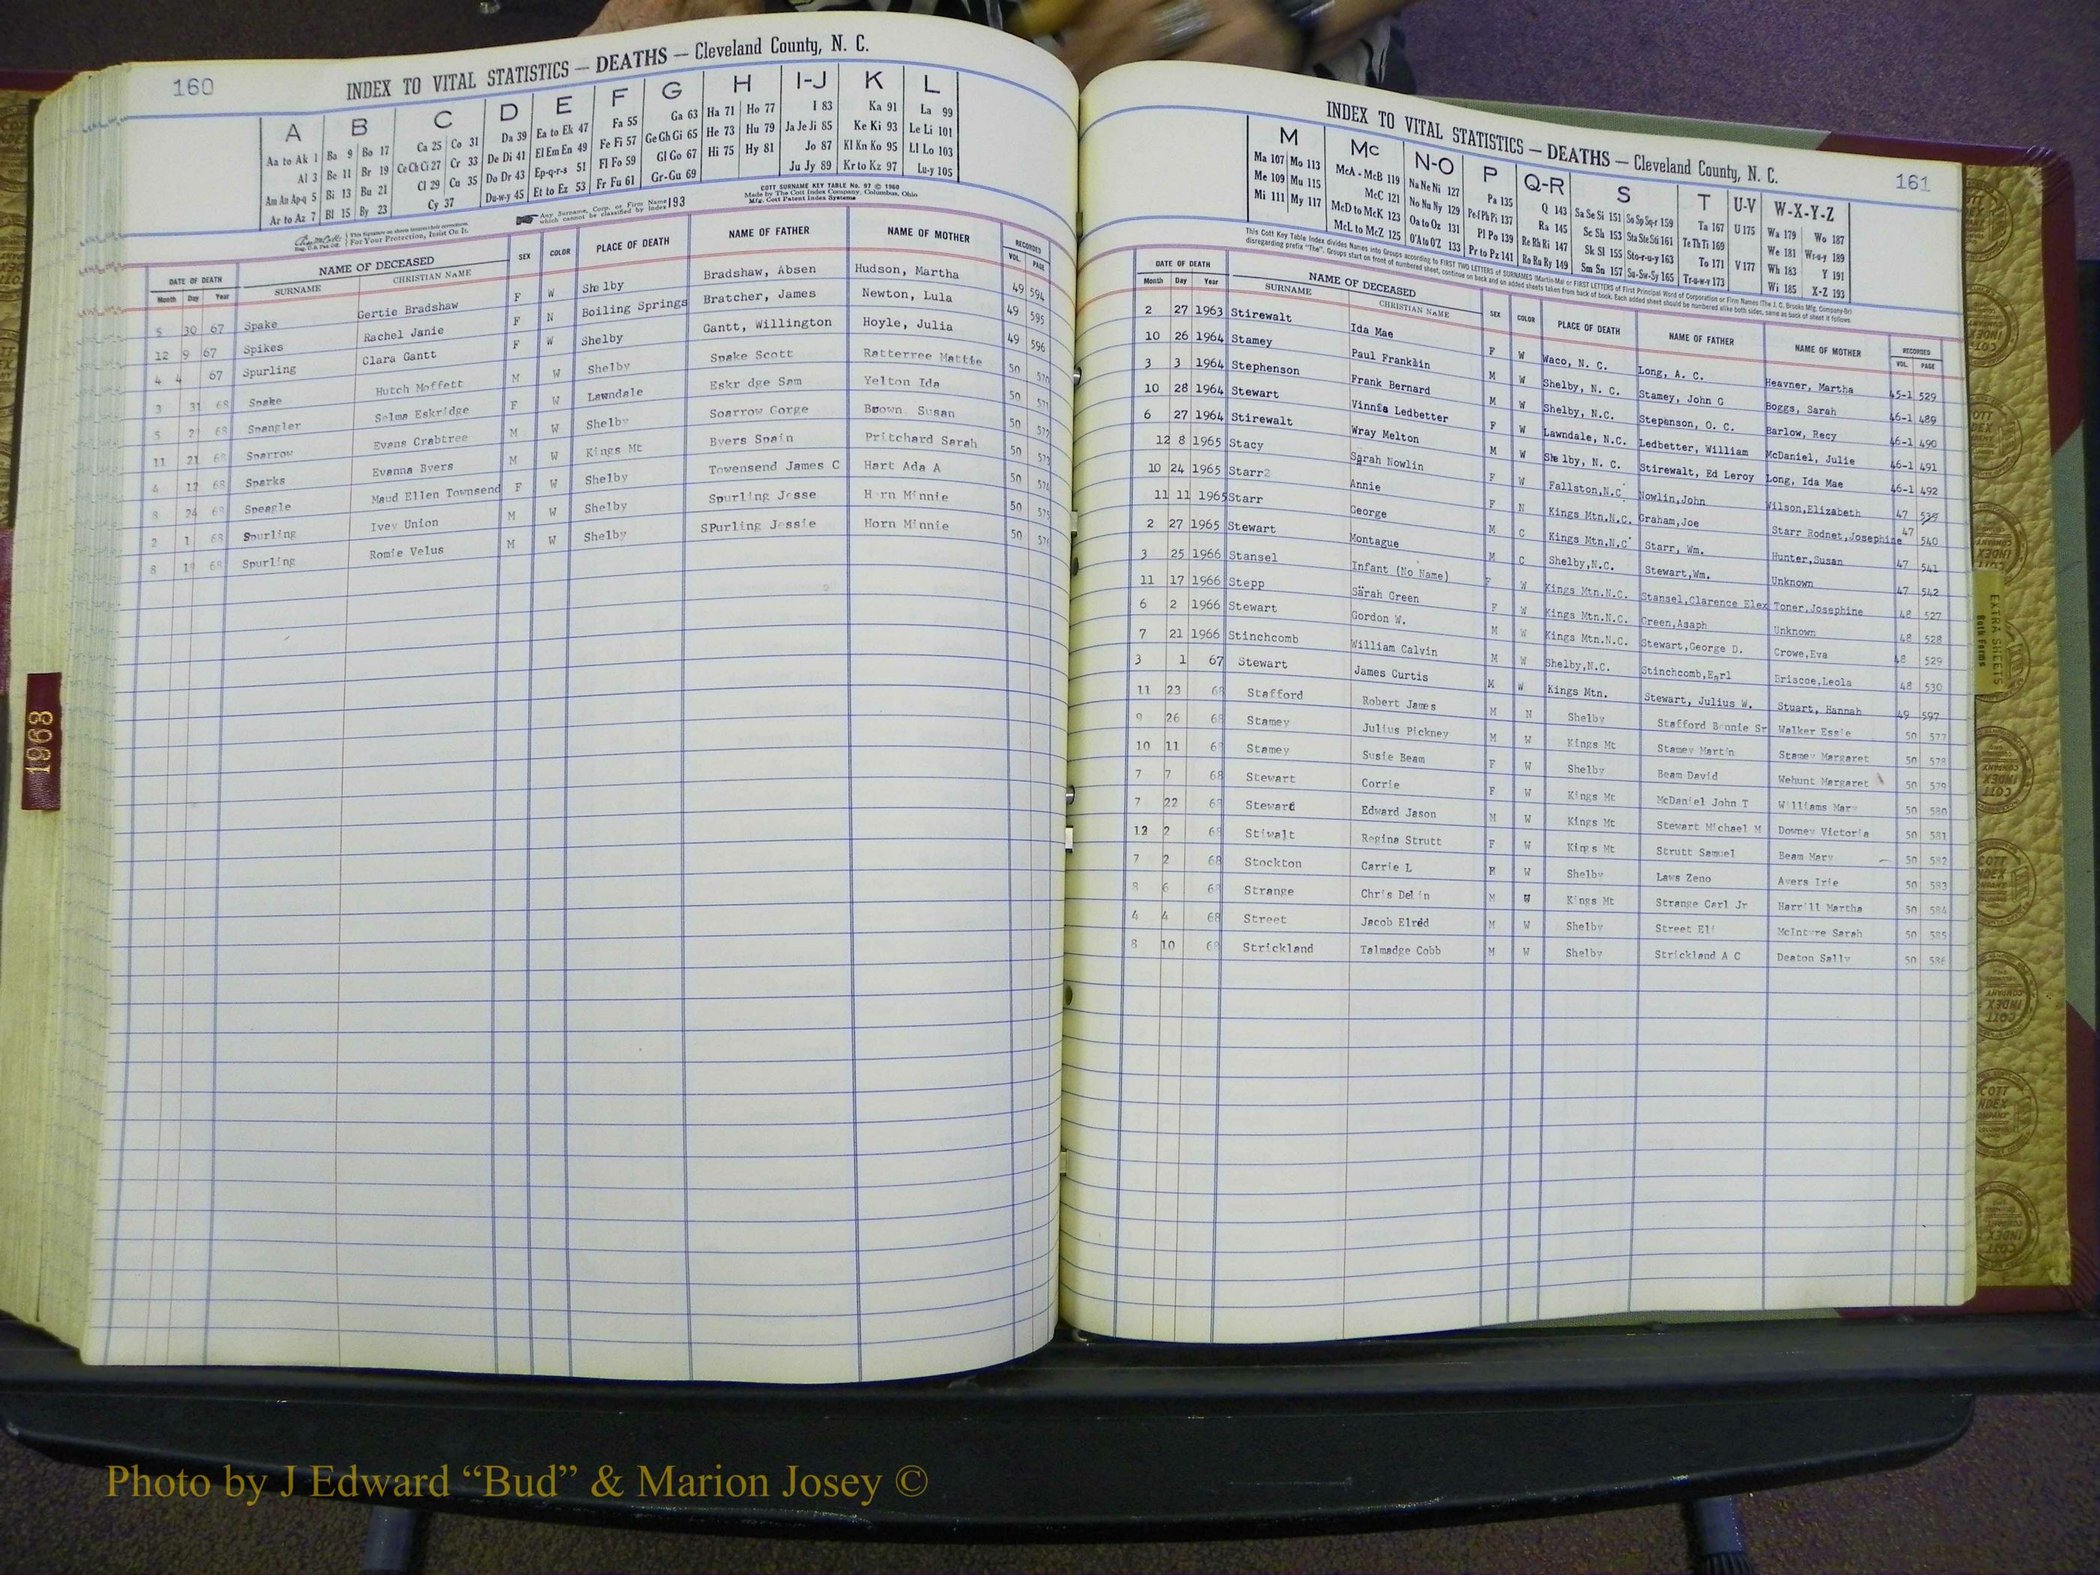 160
INDEX TO VITAL STATISTICS — DEATHS — Cleveland County, N. C.
A B C D E F G H I-J K L
Aa to Ak 1 Ba 9 Bo 17 Ca 25 Co 31 Da 39 Ea to Ek 47 Fa 55 Ga 63 Ha 71 Ho 77 I 83 Ka 91 La 99
Al 3 Be 11 Br 19 Ce Ch Ci 27 Cr 33 De Di 41 El Em En 49 Fe Fi 57 Ge Gh Gi 65 He 73 Hu 79 Ja Je Ji 85 Ke Ki 93 Le Li 101
Am An Ap-q 5 Bi 13 Bu 21 Cl 29 Cu 35 Do Dr 43 Ep-q-r-s 51 Fl Fo 59 Gl Go 67 Hi 75 Hy 81 Jo 87 Kl Kn Ko 95 Ll Lo 103
Ar to Az 7 Bl 15 By 23 Cy 37 Du-w-y 45 Et to Ez 53 Fr Fu 61 Gr-Gu 69 Ju Jy 89 Kr to Kz 97 Lu-y 105
For Your Protection, Insist On It.
Any Surname, Corp. or Firm Name which cannot be classified by Index 193
COTT SURNAME KEY TABLE No. 97 © 1960
Made by The Cott Index Company, Columbus, Ohio
Mfg. Cott Patent Index Systems
DATE OF DEATH NAME OF DECEASED SEX COLOR PLACE OF DEATH NAME OF FATHER NAME OF MOTHER RECORDED
Month Day Year SURNAME CHRISTIAN NAME VOL. PAGE
5 30 67 Spake Gertie Bradshaw F W Shelby Bradshaw, Absen Hudson, Martha 49 594
12 9 67 Spikes Rachel Janie F N Boiling Springs Bratcher, James Newton, Lula 49 595
4 4 67 Spurling Clara Gantt F W Shelby Gantt, Willington Hoyle, Julia 49 596
3 31 68 Spake Hutch Moffett M W Shelby Spake Scott Ratterree Mattie 50 570
5 2 68 Spangler Selma Eskridge F W Lawndale Eskr dge Sam Yelton Ida 50 571
11 21 68 Sparrow Evans Crabtree M W Shelby Soarrow Gorge Brown Susan 50 572
4 12 68 Sparks Evanna Byers M W Kings Mt Byers Spain Pritchard Sarah 50 573
8 24 68 Speagle Maud Ellen Townsend F W Shelby Towensend James C Hart Ada A 50 574
2 1 68 Spurling Ivey Union M W Shelby Spurling Jesse H rn Minnie 50 575
8 19 68 Spurling Romie Velus M W Shelby SPurling Jessie Horn Minnie 50 576
1968
161
INDEX TO VITAL STATISTICS — DEATHS — Cleveland County, N. C.
M Mc N-O P Q-R S T U-V W-X-Y-Z
Ma 107 Mo 113 McA - McB 119 Na Ne Ni 127 Pa 135 Q 143 Sa Se Si 151 So Sp Sq-r 159 Ta 167 U 175 Wa 179 Wo 187
Me 109 Mu 115 McC 121 No Nu Ny 129 Pe-f Ph Pi 137 Ra 145 Sc Sh 153 Sta Ste Sti 161 Te Th Ti 169 We 181 Wr-u-y 189
Mi 111 My 117 McD to McK 123 Oa to Oz 131 Pl Po 139 Re Rh Ri 147 Sk Sl 155 Sto-r-u-y 163 To 171 V 177 Wh 183 Y 191
McL to McZ 125 O'A to O'Z 133 Pr to Pz 141 Ro Ru Ry 149 Sm Sn 157 Su-Sw-Sy 165 Tr-u-w-y 173 Wi 185 X-Z 193
DATE OF DEATH NAME OF DECEASED SEX COLOR PLACE OF DEATH NAME OF FATHER NAME OF MOTHER RECORDED
Month Day Year SURNAME CHRISTIAN NAME VOL. PAGE
2 27 1963 Stirewalt Ida Mae F W Waco, N. C. Long, A. C. Heavner, Martha 45-1 529
10 26 1964 Stamey Paul Franklin M W Shelby, N. C. Stamey, John G Boggs, Sarah 46-1 489
3 3 1964 Stephenson Frank Bernard M W Shelby, N.C. Stepenson, O. C. Barlow, Recy 46-1 490
10 28 1964 Stewart Vinnia Ledbetter F W Lawndale, N.C. Ledbetter, William McDaniel, Julie 46-1 491
6 27 1964 Stirewalt Wray Melton M W Shelby, N. C. Stirewalt, Ed Leroy Long, Ida Mae 46-1 492
12 8 1965 Stacy Sarah Nowlin F W Fallston,N.C. Nowlin,John Wilson,Elizabeth 47 539
10 24 1965 Starr2 Annie F N Kings Mtn.N.C. Graham,Joe Starr Rodnet,Josephine 47 540
11 11 1965 Starr George M C Kings Mtn.N.C Starr, Wm. Hunter,Susan 47 541
2 27 1965 Stewart Montague M C Shelby,N.C. Stewart,Wm. Unknown 47 542
3 25 1966 Stansel Infant (No Name) F W Kings Mtn.N.C. Stansel,Clarence Elex Toner,Josephine 48 527
11 17 1966 Stepp Sarah Green F W Kings Mtn.N.C. Green,Asaph Unknown 48 528
6 2 1966 Stewart Gordon W. M W Kings Mtn.N.C. Stewart,George D. Crowe,Eva 48 529
7 21 1966 Stinchcomb William Calvin M W Shelby,N.C. Stinchcomb,Earl Briscoe,Leola 48 530
3 1 67 Stewart James Curtis M W Kings Mtn. Stewart, Julius W. Stuart, Hannah 49 597
11 23 68 Stafford Robert James M N Shelby Stafford B nnie Sr Walker Essie 50 577
9 26 68 Stamey Julius Pickney M W Kings Mt Stamey Martin Stamey Margaret 50 578
10 11 68 Stamey Susie Beam F W Shelby Beam David Wehunt Margaret 50 579
7 7 68 Stewart Corrie F W Kings Mt McDaniel John T Williams Mary 50 580
7 22 68 Steward Edward Jason M W Kings Mt Stewart Michael M Downey Victoria 50 581
12 2 68 Stiwalt Regina Strutt F W Kings Mt Strutt Samuel Beam Mary 50 582
7 2 68 Stockton Carrie L F W Shelby Laws Zeno Avers Irie 50 583
8 6 68 Strange Chris Delin M W Kings Mt Strange Carl Jr Harrill Martha 50 584
4 4 68 Street Jacob Elred M W Shelby Street Eli McIntyre Sarah 50 585
8 10 68 Strickland Talmadge Cobb M W Shelby Strickland A C Deaton Sally 50 586
EXTRA SHEETS
Both Forms
COTT INDEX COMPANY
Photo by J Edward “Bud” & Marion Josey ©